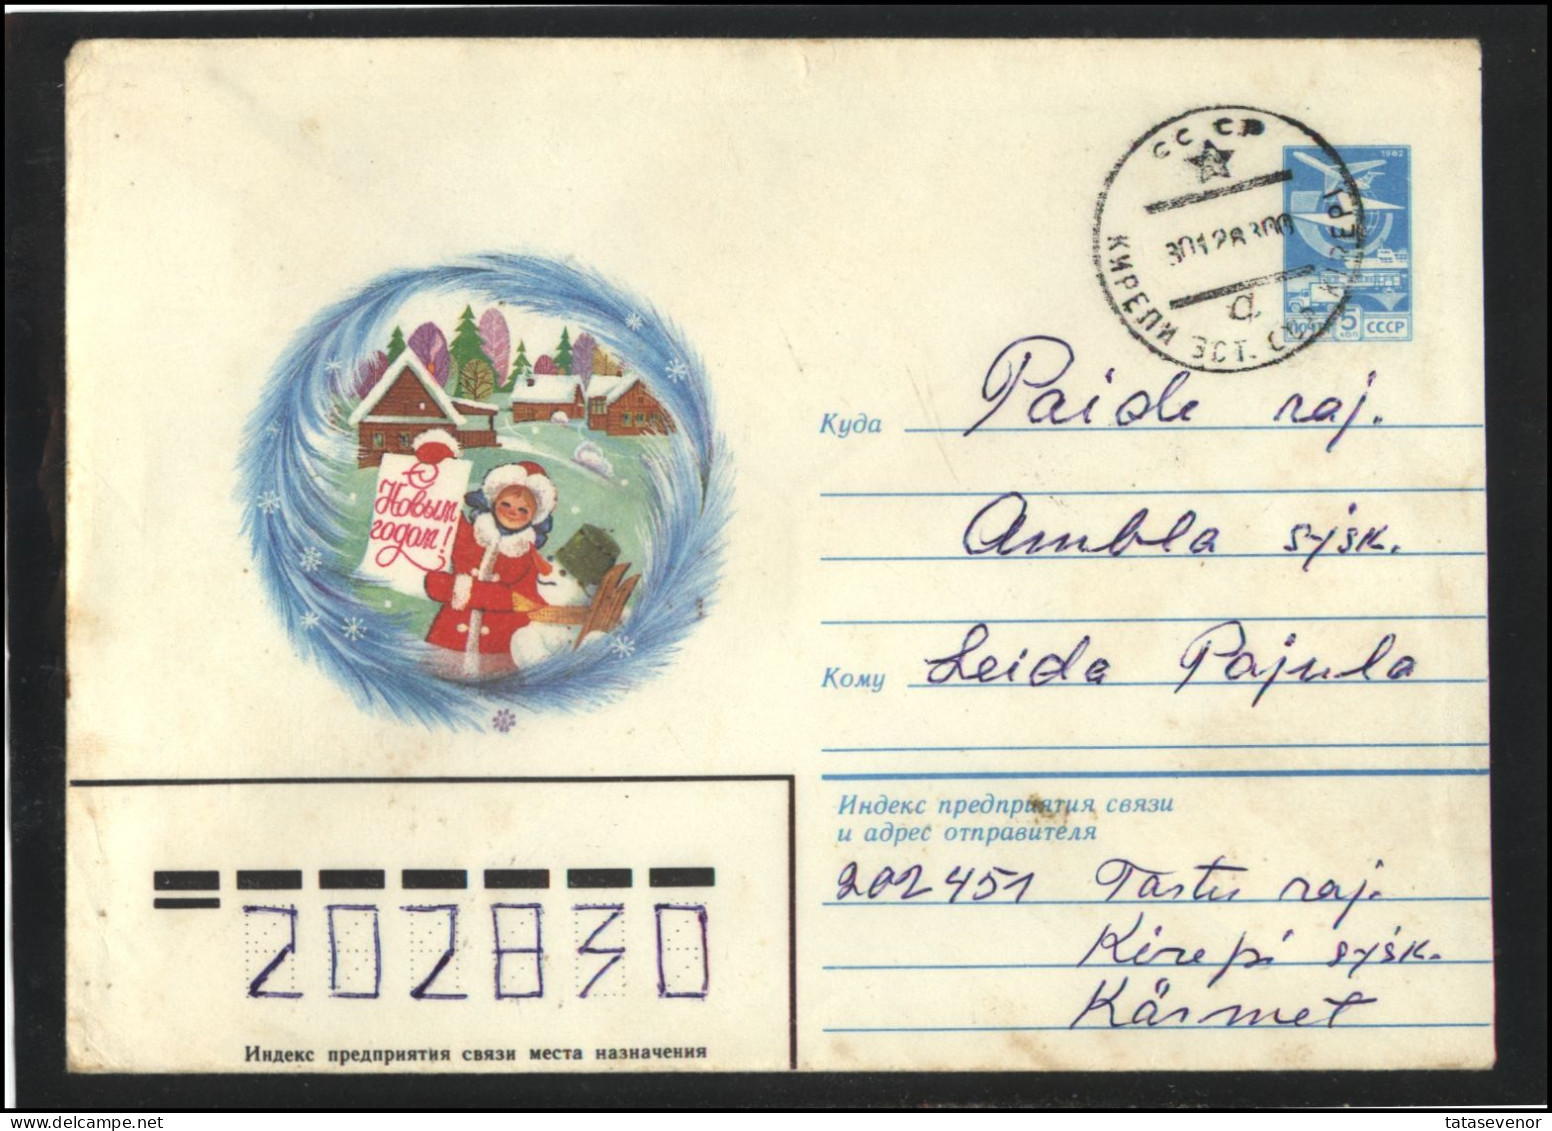 СССР
30128300
КИРЕПИ ЭСТ. ССР KIREPI
а
1982
ПОЧТА 5 коп СССР
С
Новым
годом!
Куда Paide raj.
Ambla s-jsk.
Кому Leida Pajula
Индекс предприятия связи
и адрес отправителя
202451 Tartu raj.
Kirepi s-jsk.
Kärmet
202830
Индекс предприятия связи места назначения
tatasevenor